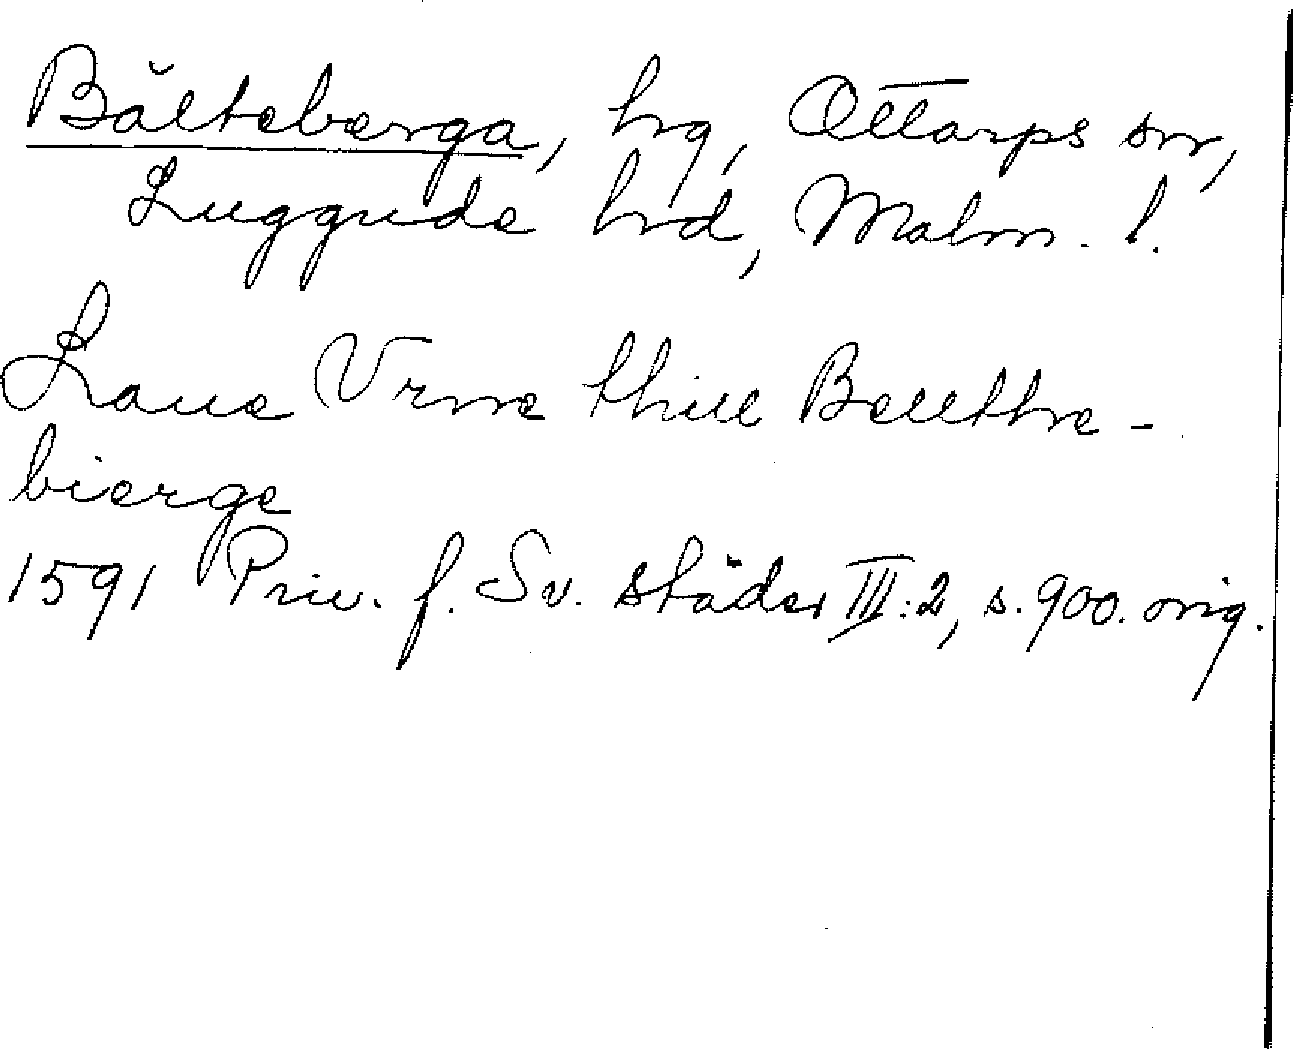 Bälteberga, hrg, Ottarps sn,
Luggude hrd, Malm. l.
Laue Vrne thill Bellthe-
bierge
1591 Priv. f. Sv. städer III:2, s. 900. orig.